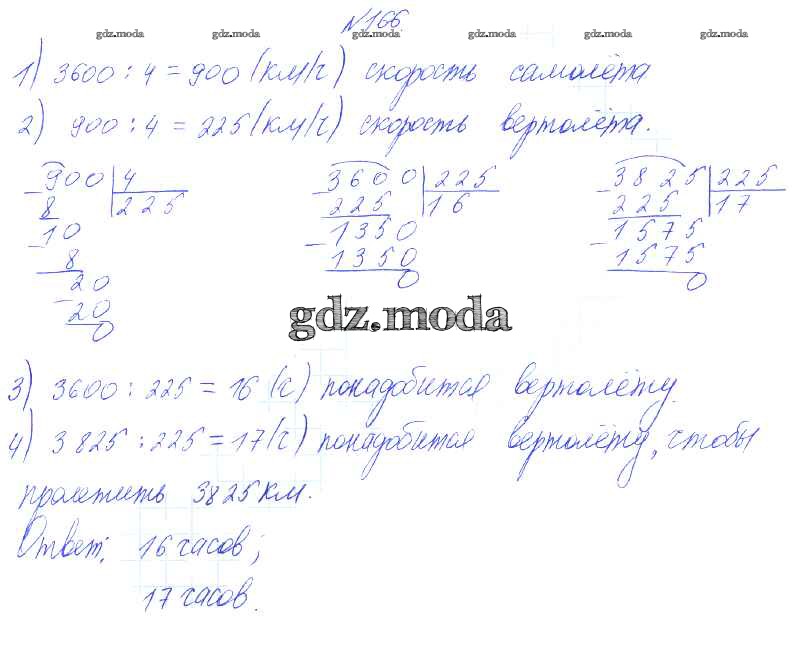 №166
gdz.moda gdz.moda gdz.moda gdz.moda gdz.moda gdz.moda
1) 3600 : 4 = 900 (км/ч) скорость самолёта
2) 900 : 4 = 225 (км/ч) скорость вертолёта.
900 | 4
8 | 225
10
8
20
20
0
3600 | 225
225 | 16
1350
1350
0
3825 | 225
225 | 17
1575
1575
0
gdz.moda
3) 3600 : 225 = 16 (ч) понадобится вертолёту.
4) 3825 : 225 = 17 (ч) понадобится вертолёту, чтобы
пролетить 3825 км.
Ответ: 16 часов;
17 часов.